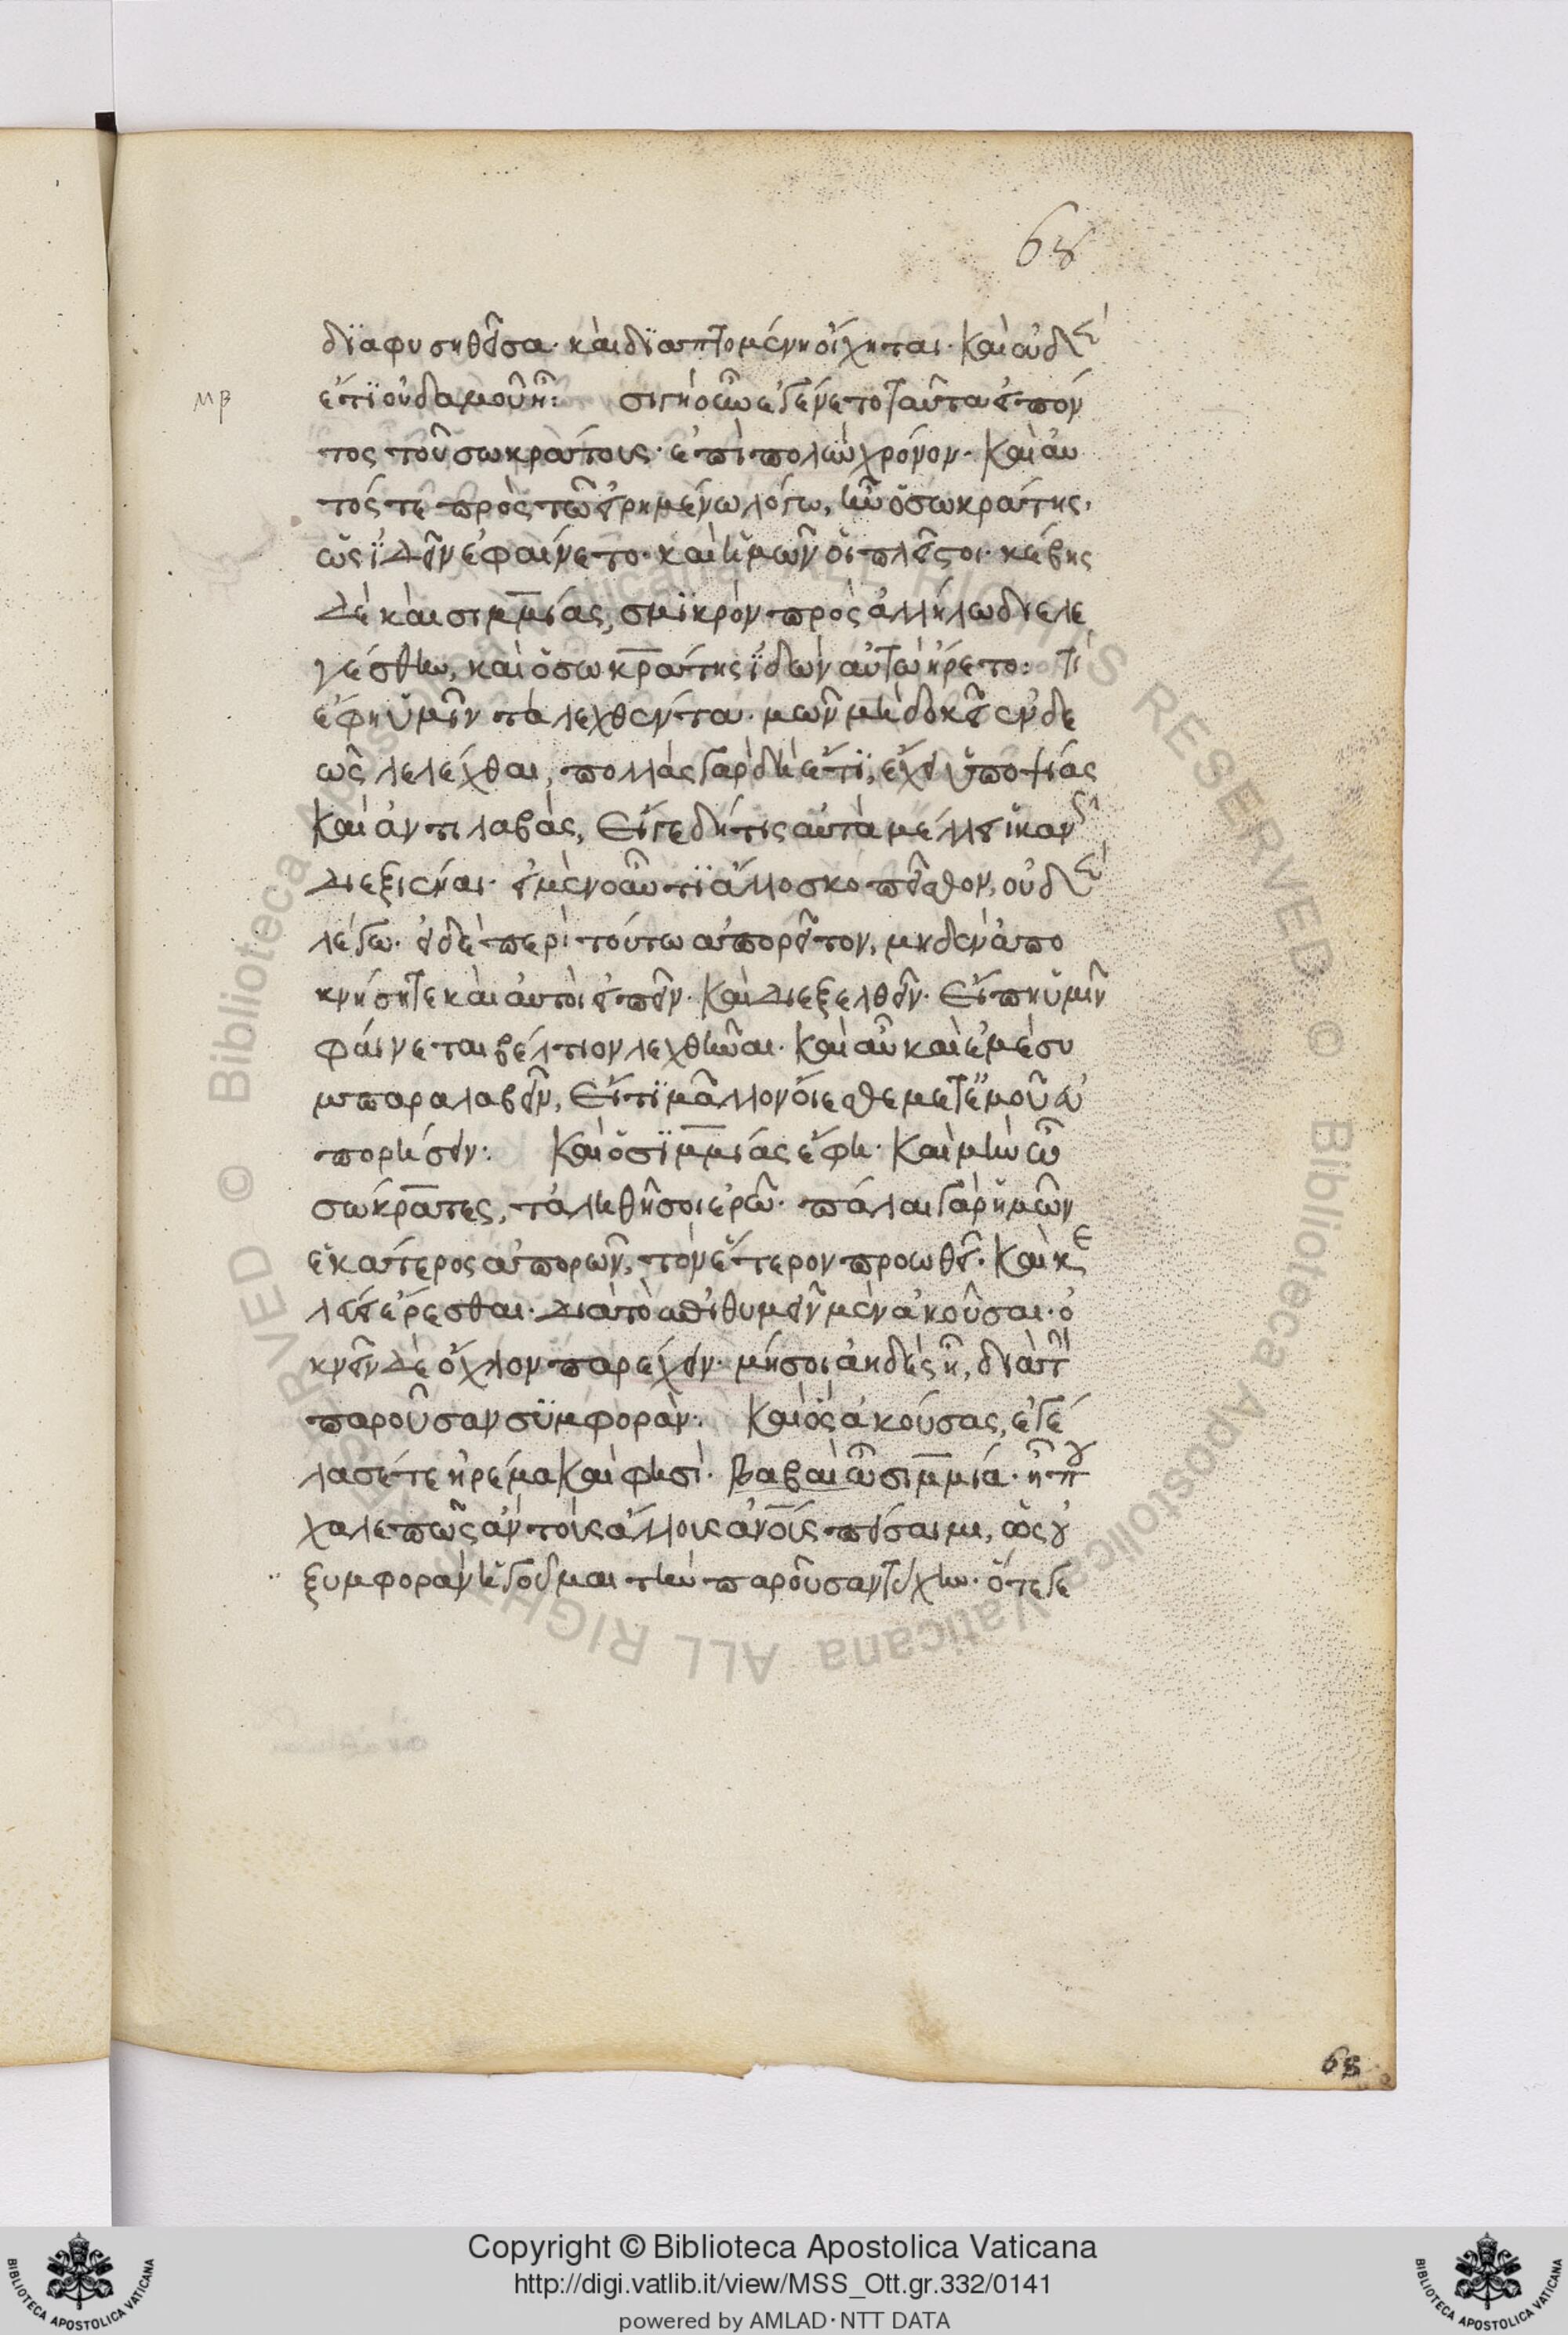 68
διαφυσηθεῖσα· καὶ διαπτομένη οἴχηται· Καὶ οὐδὲν
μβ
ἔτι οὐδαμοῦ ἦ: σιγὴ οὖν ἐγένετο ταῦτα εἰπόν
τος τοῦ σωκράτους· ἐπὶ πολὺν χρόνον· Καὶ αυ
τός τε πρὸς τῶ εἰρημένω λόγω, ἦν ὁ σωκράτης,
ὡς ἰδεῖν ἐφαίνετο· καὶ ἡμῶν οἱ πλεῖστοι· κέβης
δὲ καὶ σιμμίας, σμικρὸν πρὸς ἀλλήλω διελε
γέσθην, καὶ ὁ σωκράτης ἰδὼν αὐτὼ ἤρετο: Τί
ἔφη ὑμῖν τὰ λεχθέντα· μῶν μὴ δοκεῖ ἐνδε
ῶς λελέχθαι, πολλὰς γὰρ δὴ ἔτι, ἔχει ὑποψίας
Καὶ ἀντιλαβὰς, Εἴ γε δή τις αὐτὰ μέλλει ἱκανῶς
διεξιέναι· εἰ μὲν οὖν τι ἄλλο σκοπεῖσθον, οὐδὲν
λέγω· εἰ δὲ περὶ τούτω ἀπορεῖτον, μηδὲν ἀπο
κνήσητε καὶ αὐτοὶ εἰπεῖν· Καὶ διεξελθεῖν· Εἴ πη ὑμῖν
φαίνεται βέλτιον λεχθῆναι· Καὶ αὖ καὶ ἐμὲ συ
μπαραλαβεῖν, Εἴ τι μᾶλλον οἴεσθε μετ' ἐμοῦ εὐ
πορήσειν: Καὶ ὁ σιμμίας ἔφη· Καὶ μὴν ὦ
σώκρατες, τἀληθῆ σοι ἐρῶ· πάλαι γὰρ ἡμῶν
ἑκάτερος ἀπορῶν, τὸν ἕτερον προωθεῖ· Καὶ κε
λεύει ἔρεσθαι· διὰ τὸ ἐπιθυμεῖν μὲν ἀκοῦσαι· ὀ
κνεῖν δὲ ὄχλον παρέχειν· μή σοι ἀηδὲς ἦ, διὰ τὴν
παροῦσαν συμφοράν: Καὶ ὃς ἀκούσας, ἐγέ
λασέ τε ἠρέμα Καὶ φησὶ· Βαβαὶ ὦ σιμμία· ἦ που
χαλεπῶς ἂν τοὺς ἄλλους ἀνους πείσαιμι, ὡς οὐ
ξυμφορὰν ἡγοῦμαι τὴν παροῦσαν τύχην· ὅτε γε
68
Copyright © Biblioteca Apostolica Vaticana
http://digi.vatlib.it/view/MSS_Ott.gr.332/0141
powered by AMLAD·NTT DATA